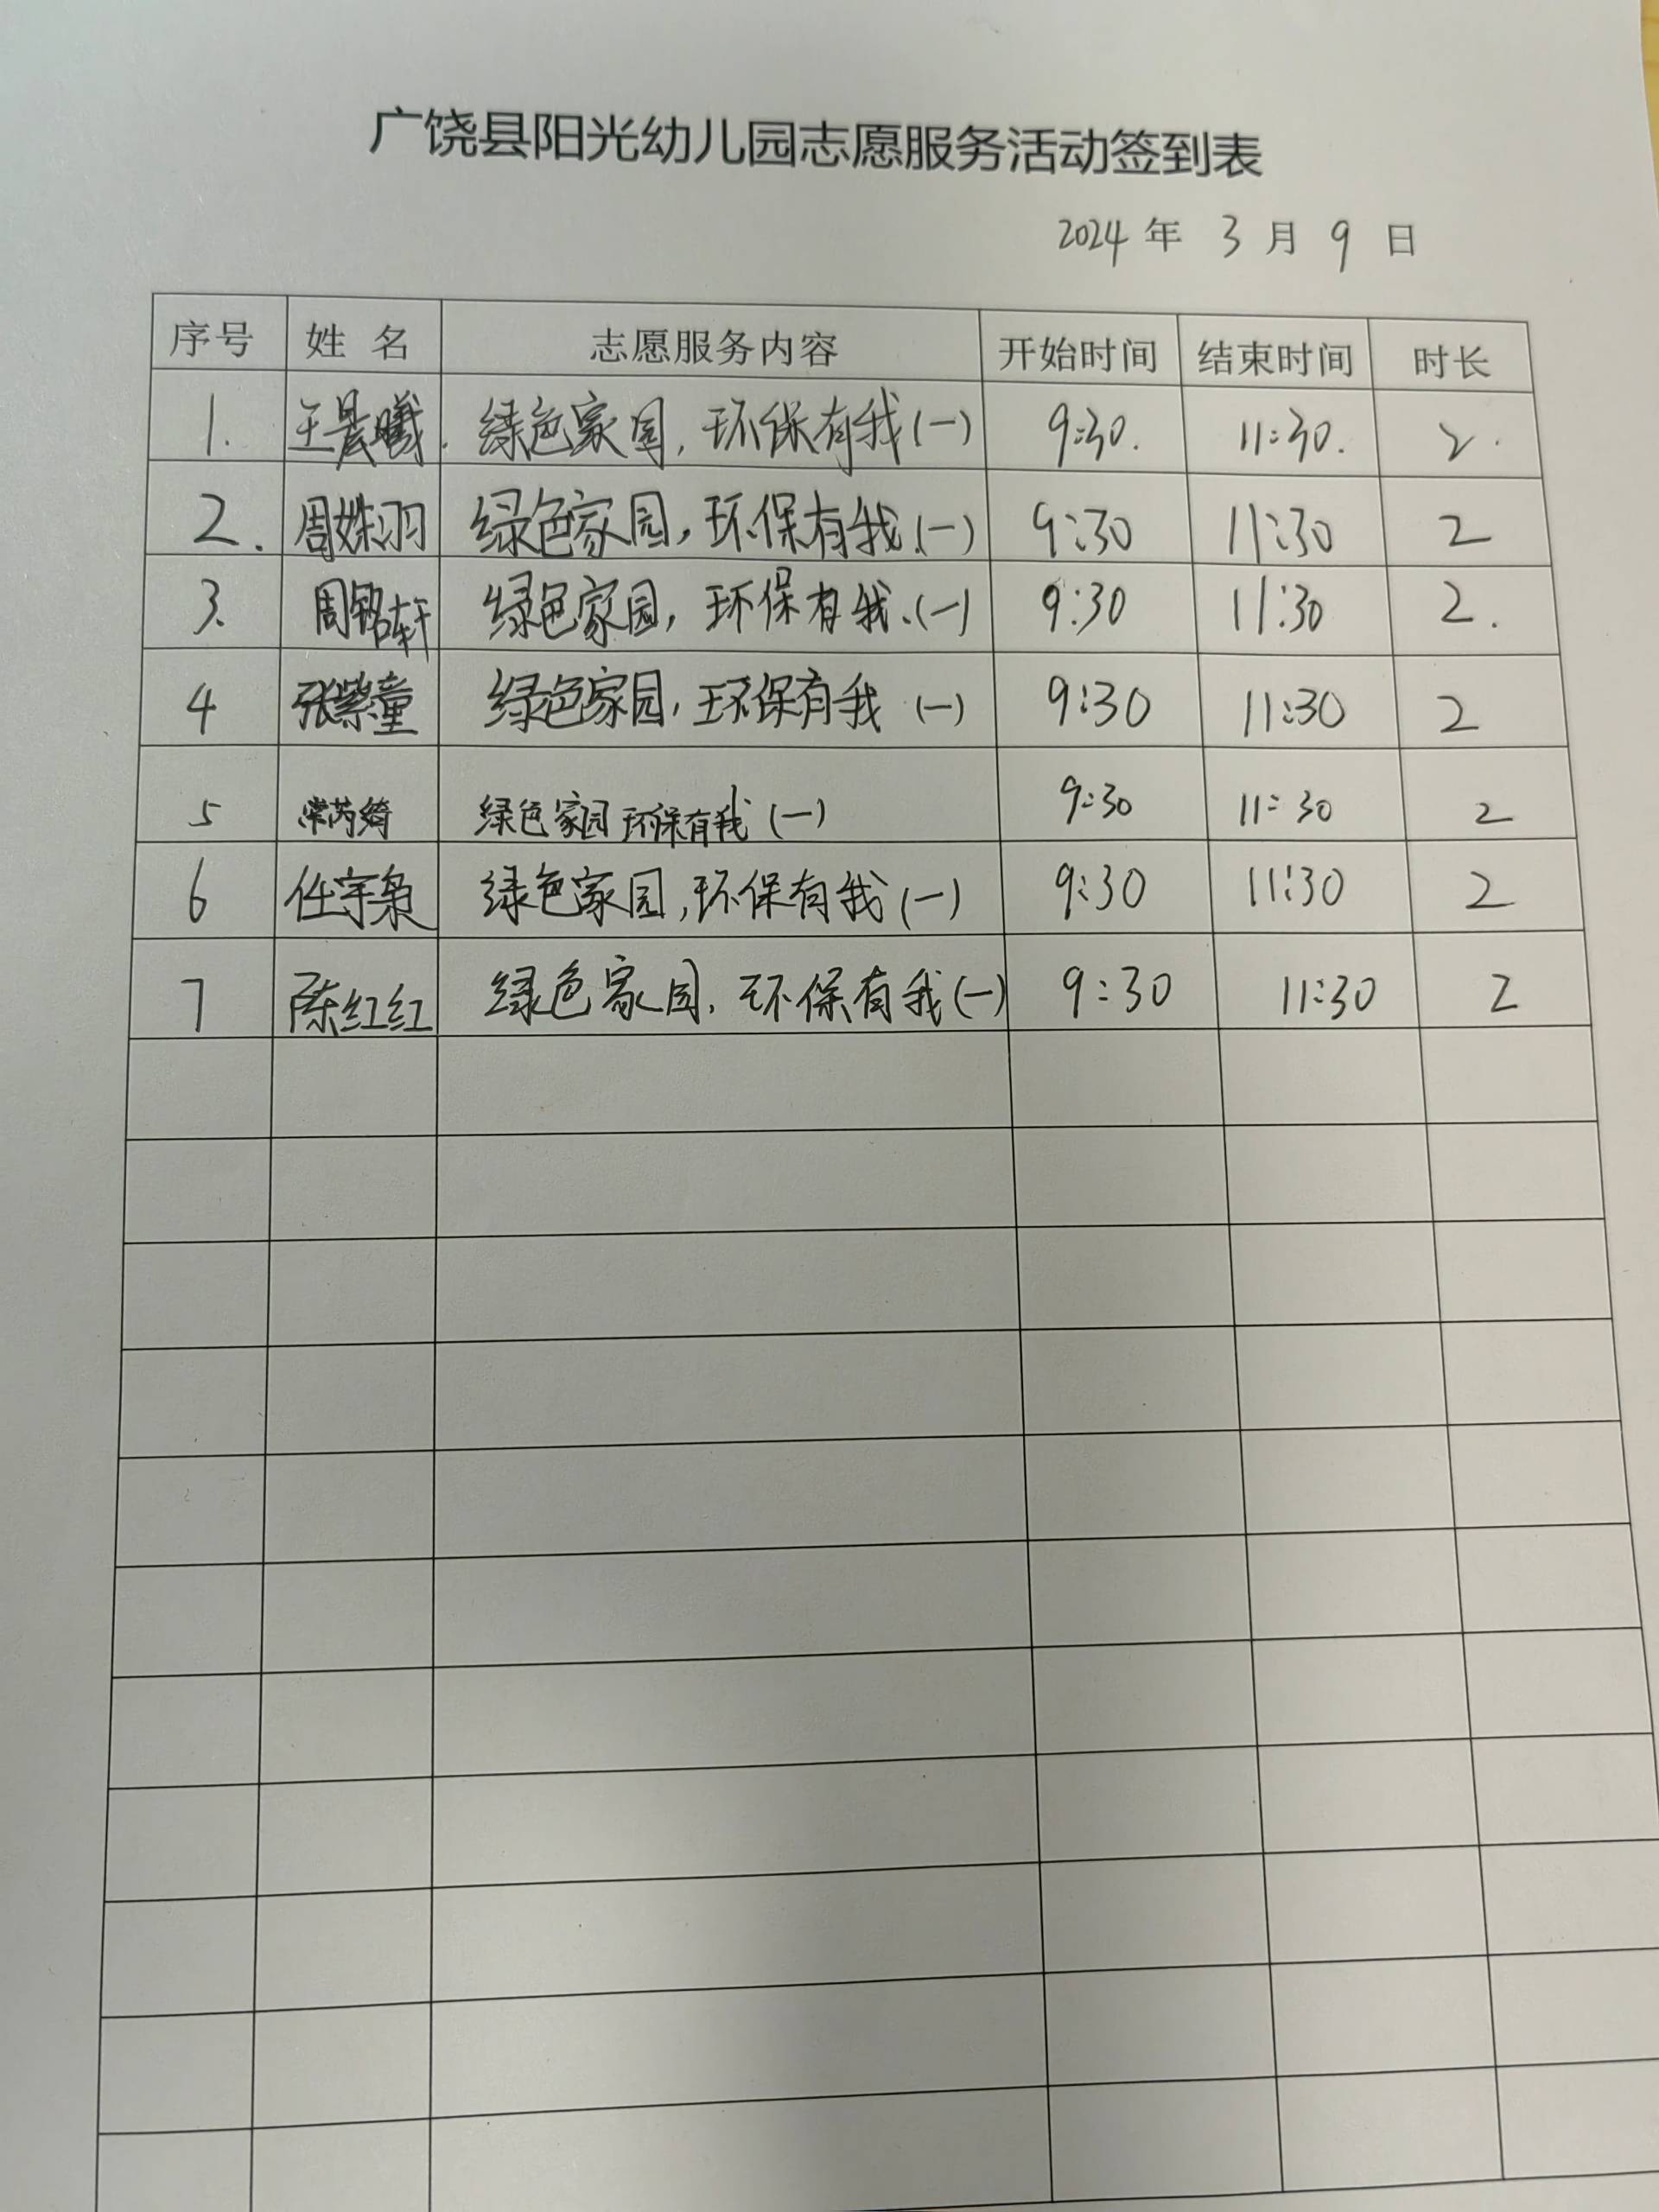 广饶县阳光幼儿园志愿服务活动签到表
2024 年 3 月 9 日
序号 姓 名 志愿服务内容 开始时间 结束时间 时长
1. 王晨曦. 绿色家园,环保有我(一) 9:30. 11:30. 2.
2. 周姝羽 绿色家园,环保有我.(一) 9:30 11:30 2
3. 周铭轩 绿色家园,环保有我.(一) 9:30 11:30 2.
4 张紫童 绿色家园,环保有我 (一) 9:30 11:30 2
5 常芮绮 绿色家园 环保有我 (一) 9:30 11:30 2
6 任宇枭 绿色家园,环保有我(一) 9:30 11:30 2
7 陈红红 绿色家园,环保有我(一) 9:30 11:30 2